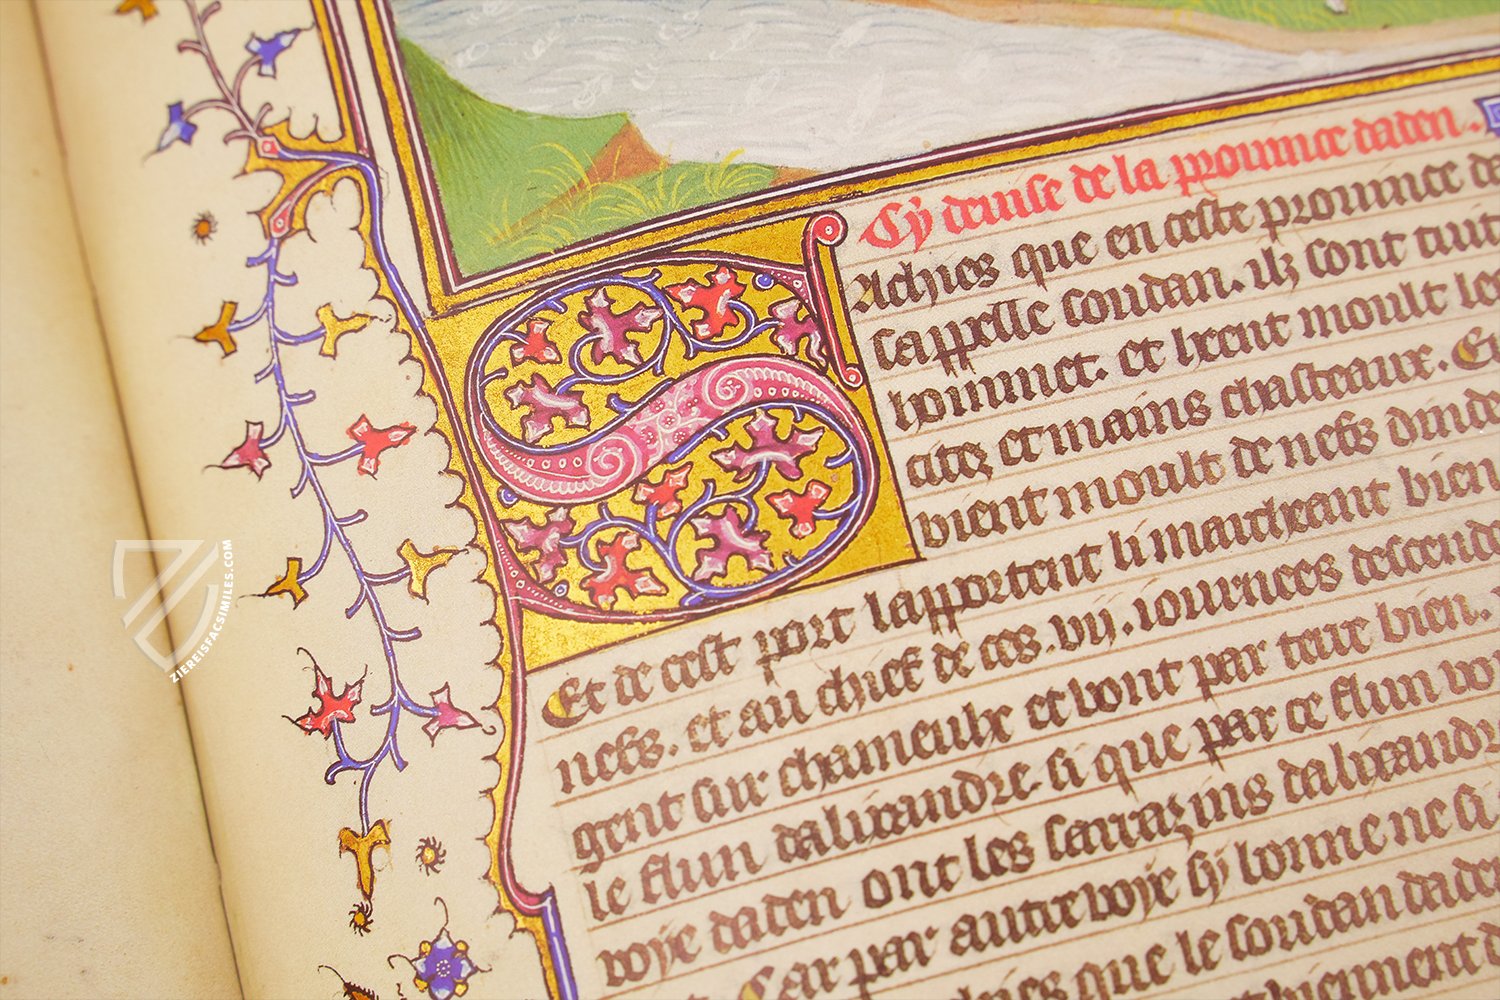 Cy deuise de la prouince daden.
Sachies que en ceste prouince da
sappelle soudan. ilz sont tuit
hommet. et heent moult les
cites et mains chasteaux. Et
vient moult de nefs dinde
Et de cest port lapportent li marcheant bien
nefs. et au chief de ces .vij. iournees descend
gent sur chameulx et vont par terre bien.
le flun dalixandre. si que par ce flun vo
voye daden ont les sarrazins dalixandr
Car par autre voye sy bonne ne si
que le soudan daden
ZIEREISFACSIMILES.COM